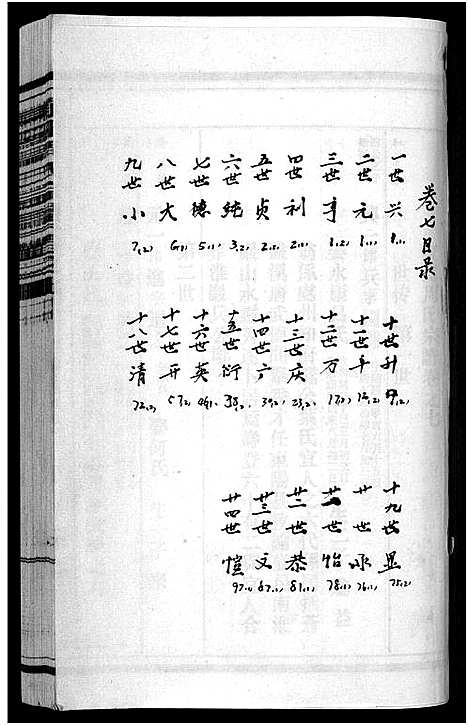 卷七目录
一世 兴 1.(1)
二世 元 1.(1)
三世 亨 1.(2)
四世 利 2.(1)
五世 贞 2.(2)
六世 纯 3.(2)
七世 德 5.(1)
八世 大 6.(1)
九世 小 7.(2)
十世 升 9.(2)
十一世 年 12.(2)
十二世 万 17.(2)
十三世 庆 23.(2)
十四世 广 39.(2)
十五世 衍 38.(2)
十六世 英
十七世 开 57(2)
十八世 清 72.(2)
十九世 显 75.(2)
廿世 承 76.(1)
廿一世 怡 78.(1)
廿二世 恭 81.(1)
廿三世 文 87.(1)
廿四世 恺 97.(1)